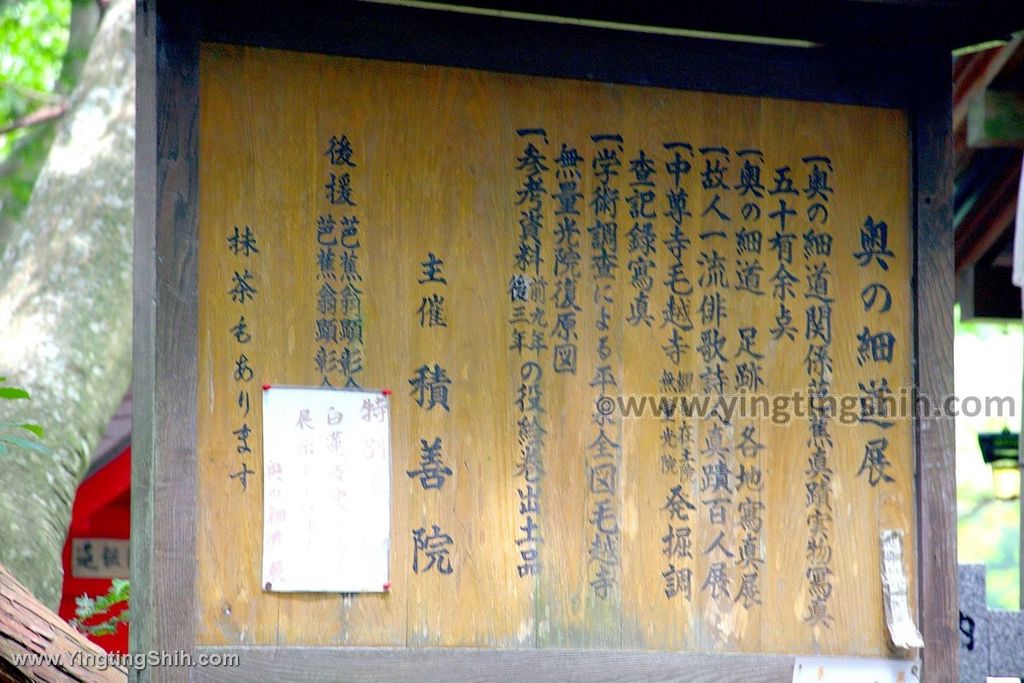 奥の細道展
一、奥の細道関係芭蕉真蹟実物寫真
五十有余点
一、奥の細道 足跡 各地寫真展
一、故人一流俳歌詩人真蹟百人展
一、中尊寺毛越寺 観自在王院 無量光院 発掘調
査記録寫真
一、学術調査による平泉全図毛越寺
無量光院復原図
一、参考資料 前九年 後三年 の役絵巻出土品
主催 積善院
後援 芭蕉翁顕彰会
芭蕉翁顕彰会
抹茶もあります
特別
白蓮
展示
奥の細道展
©www.yingtingshih.com
www.YingtingShih.com